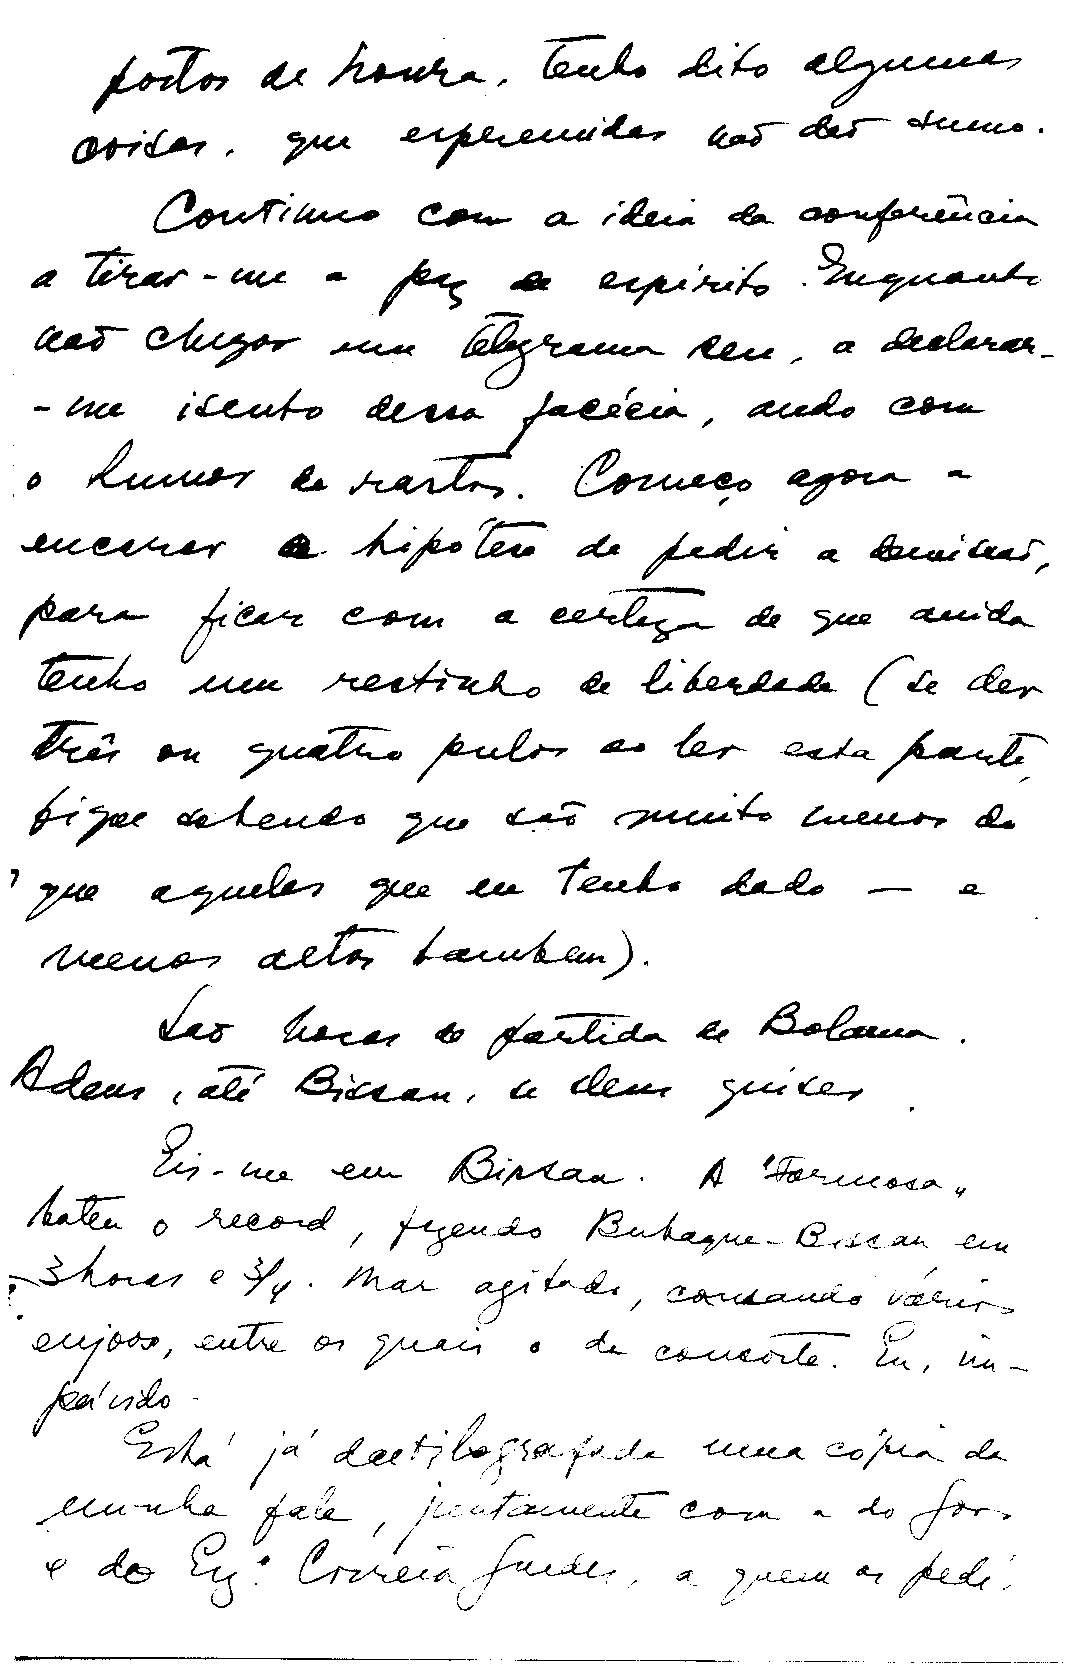 portos de honra, tenho dito algumas
coisas, que espremidas não dão sumo.
Continuo com a ideia da conferência
a tirar-me a paz de espírito. Enquanto
não chegar um telegrama seu, a declarar-
-me isento dessa facécia, ando com
o humor de rastos. Começo agora a
encarar a hipótese de pedir a demissão,
para ficar com a certeza de que ainda
tenho um restinho de liberdade (se der
três ou quatro pulos ao ler esta parte,
fique sabendo que são muito menos do
que aqueles que eu tenho dado — e
menos altos tambem).
São horas de partida de Bolama.
Adeus, até Bissau, se deus quiser.
Eis-me em Bissau. A "Formosa"
bateu o record, fazendo Bubaque-Bissau em
3 horas e 3/4. Mar agitado, causando vários
enjoos, entre os quais o da consorte. Eu, im-
pávido.
Está já dactilografada uma cópia da
minha fala, juntamente com a do Gov.
e do Eng.º Correia Guedes, a quem as pedi.